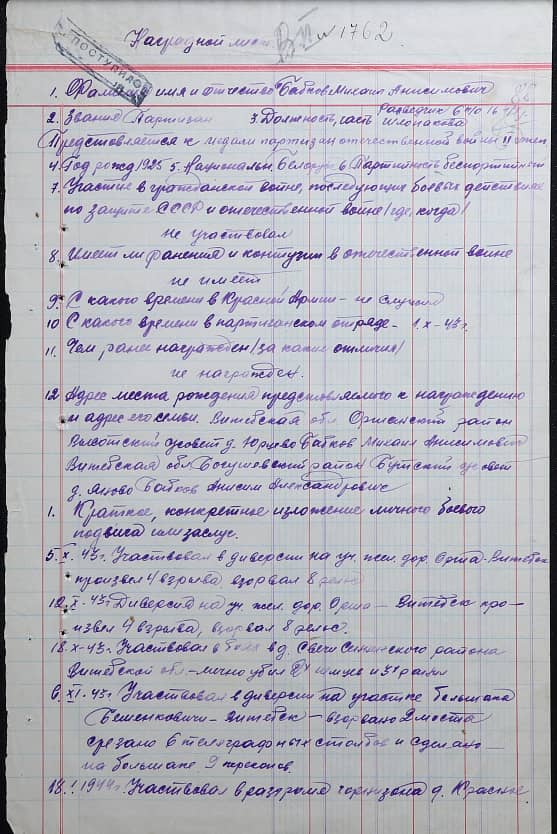 Наградной лист
ВП № 1762
ПОСТУПИЛО
1. Фамилия имя и отчество Бабков Михаил Анисимович
2. Звание Партизан 3. Должность, часть Разведчик 6 п/о 16 п/б Шлопакова
Представляется к медали партизан отечественной войны II степ
4. Год рожд 1925 5. Национальн. Белорус 6 Партийность беспартийный
7. Участие в гражданской войне, последующих боевых действиях
по защите СССР и отечественной войне /где, когда/
не участвовал
8. Имеет ли ранения и контузии в отечественной войне
не имеет
9. С какого времени в Красной Армии – не служил
10 С какого времени в партизанском отряде – 1.X-43г.
11. Чем, ранее награжден /за какие отличия/
не награжден.
12 Адрес места рождения представляемого к награждению
и адрес его семьи. Витебская обл. Оршанский район
Высотский с/совет д. Юрцево Бабков Михаил Анисимович
Витебская обл Богушевский район с/совет
д. Бабков Анисим Александрович
1. Краткое, конкретное изложение личного боевого
подвига или заслуг.
5.X.43г. Участвовал в диверсии на уч. жел. дор. Орша-Витебск
произвел 4 взрыва взорвал 8 рельс
12.X.43г Диверсия на уч. жел. дор. Орша – Витебск про-
извел 4 взрыва, взорвал 8 рельс.
18.X-43г. Участвовал в бою в д. Свечи Сенненского района
Витебской обл. – лично убил немцев и ранил
6.XI.43г. Участвовал в диверсии на участке большака
Бешенковичи – Витебск – взорвано 2 моста
срезано 6 телеграфных столбов и сделано
на большаке 9 перекопов.
18.I.1944г. Участвовал в разгроме гарнизона д. Красное